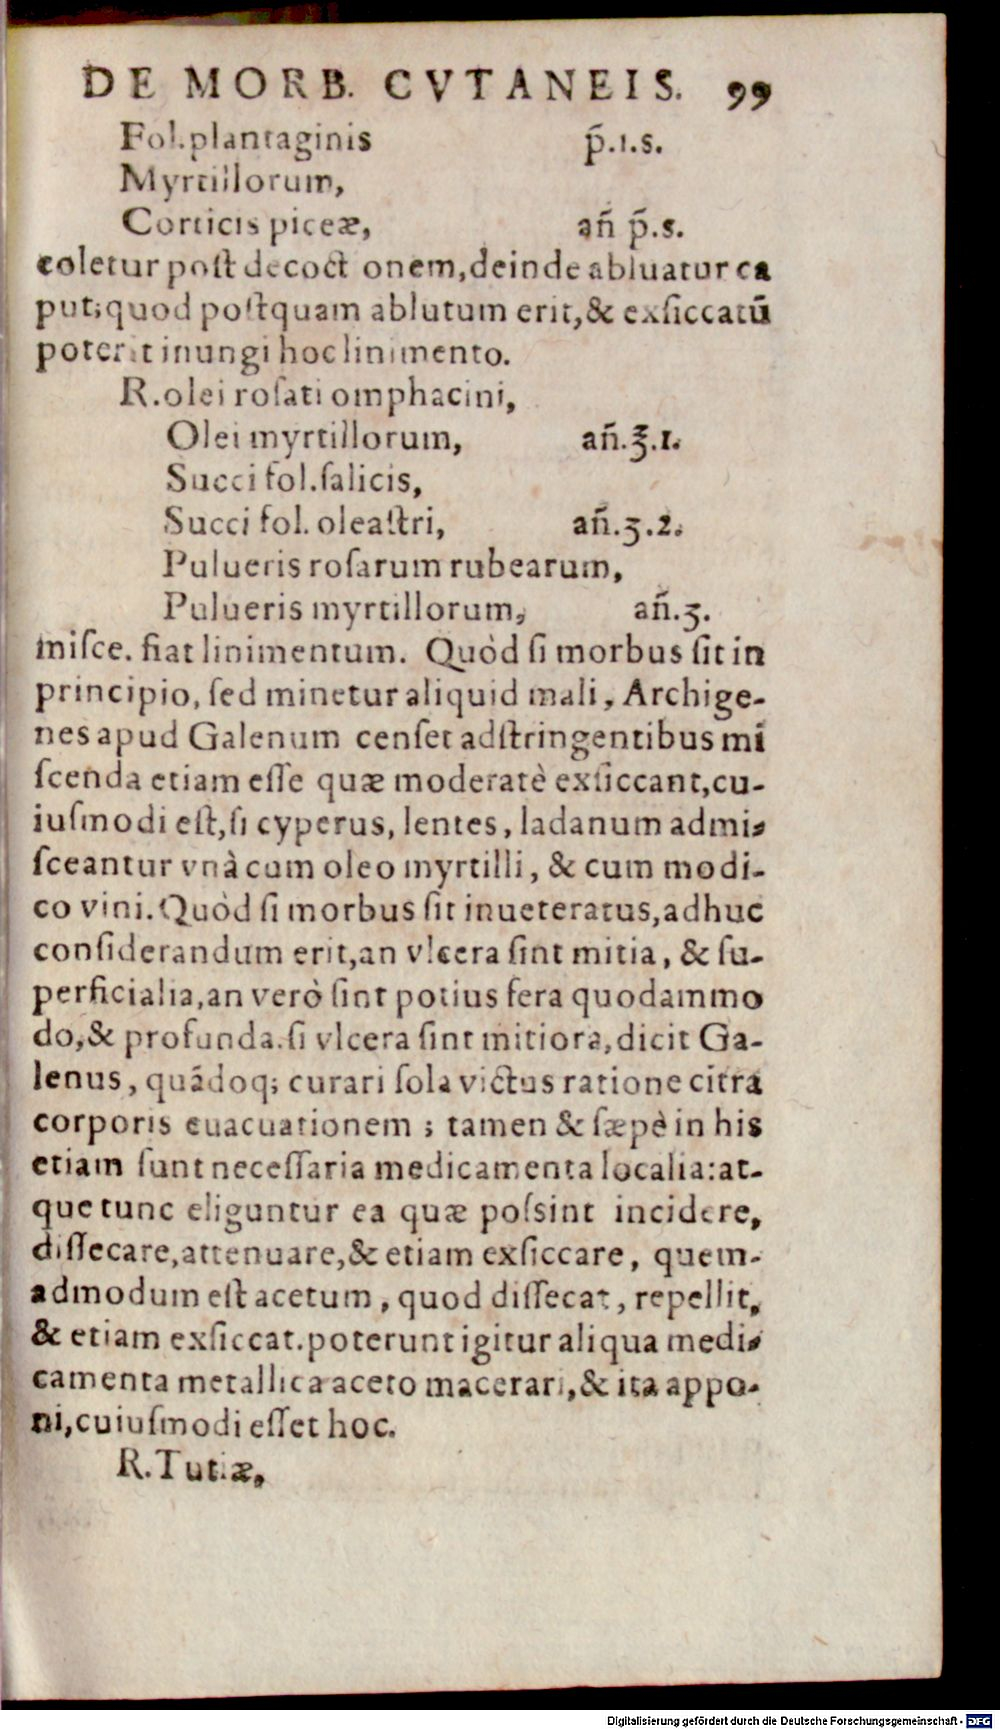 DE MORB. CVTANEIS. 99
Fol.plantaginis p̃.1.s.
Myrtillorum,
Corticis piceæ, añ p̃.s.
coletur poſt decoctionem,deinde abluatur ca
put;quod poſtquam ablutum erit,& exſiccatū
poterit inungi hoc linimento.
R.olei roſati omphacini,
Olei myrtillorum, añ.℥.1.
Succi fol.ſalicis,
Succi fol. oleaſtri, añ.ʒ.2.
Pulueris roſarum rubearum,
Pulueris myrtillorum, añ.ʒ.
miſce. fiat linimentum. Quòd ſi morbus ſit in
principio, ſed minetur aliquid mali, Archige-
nes apud Galenum cenſet adſtringentibus mi
ſcenda etiam eſſe quæ moderatè exſiccant,cu-
iuſmodi eſt,ſi cyperus, lentes, ladanum admi-
ſceantur vnà cum oleo myrtilli, & cum modi-
co vini. Quòd ſi morbus ſit inueteratus,adhuc
conſiderandum erit,an vlcera ſint mitia, & ſu-
perficialia,an verò ſint potius fera quodammo
do,& profunda.ſi vlcera ſint mitiora,dicit Ga-
lenus, quãdoq; curari ſola victus ratione citra
corporis euacuationem ; tamen & ſæpè in his
etiam ſunt neceſſaria medicamenta localia:at-
que tunc eliguntur ea quæ poſsint incidere,
diſſecare,attenuare,& etiam exſiccare, quem-
admodum eſt acetum, quod diſſecat, repellit,
& etiam exſiccat.poterunt igitur aliqua medi-
camenta metallica aceto macerari,& ita appo-
ni,cuiuſmodi eſſet hoc.
R.Tutiæ,
Digitalisierung gefördert durch die Deutsche Forschungsgemeinschaft - DFG